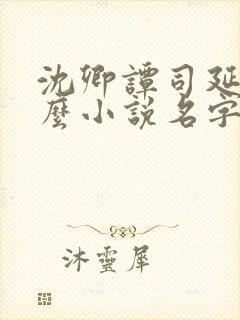 沈卿譚司延
麼小說名字
沐靈犀